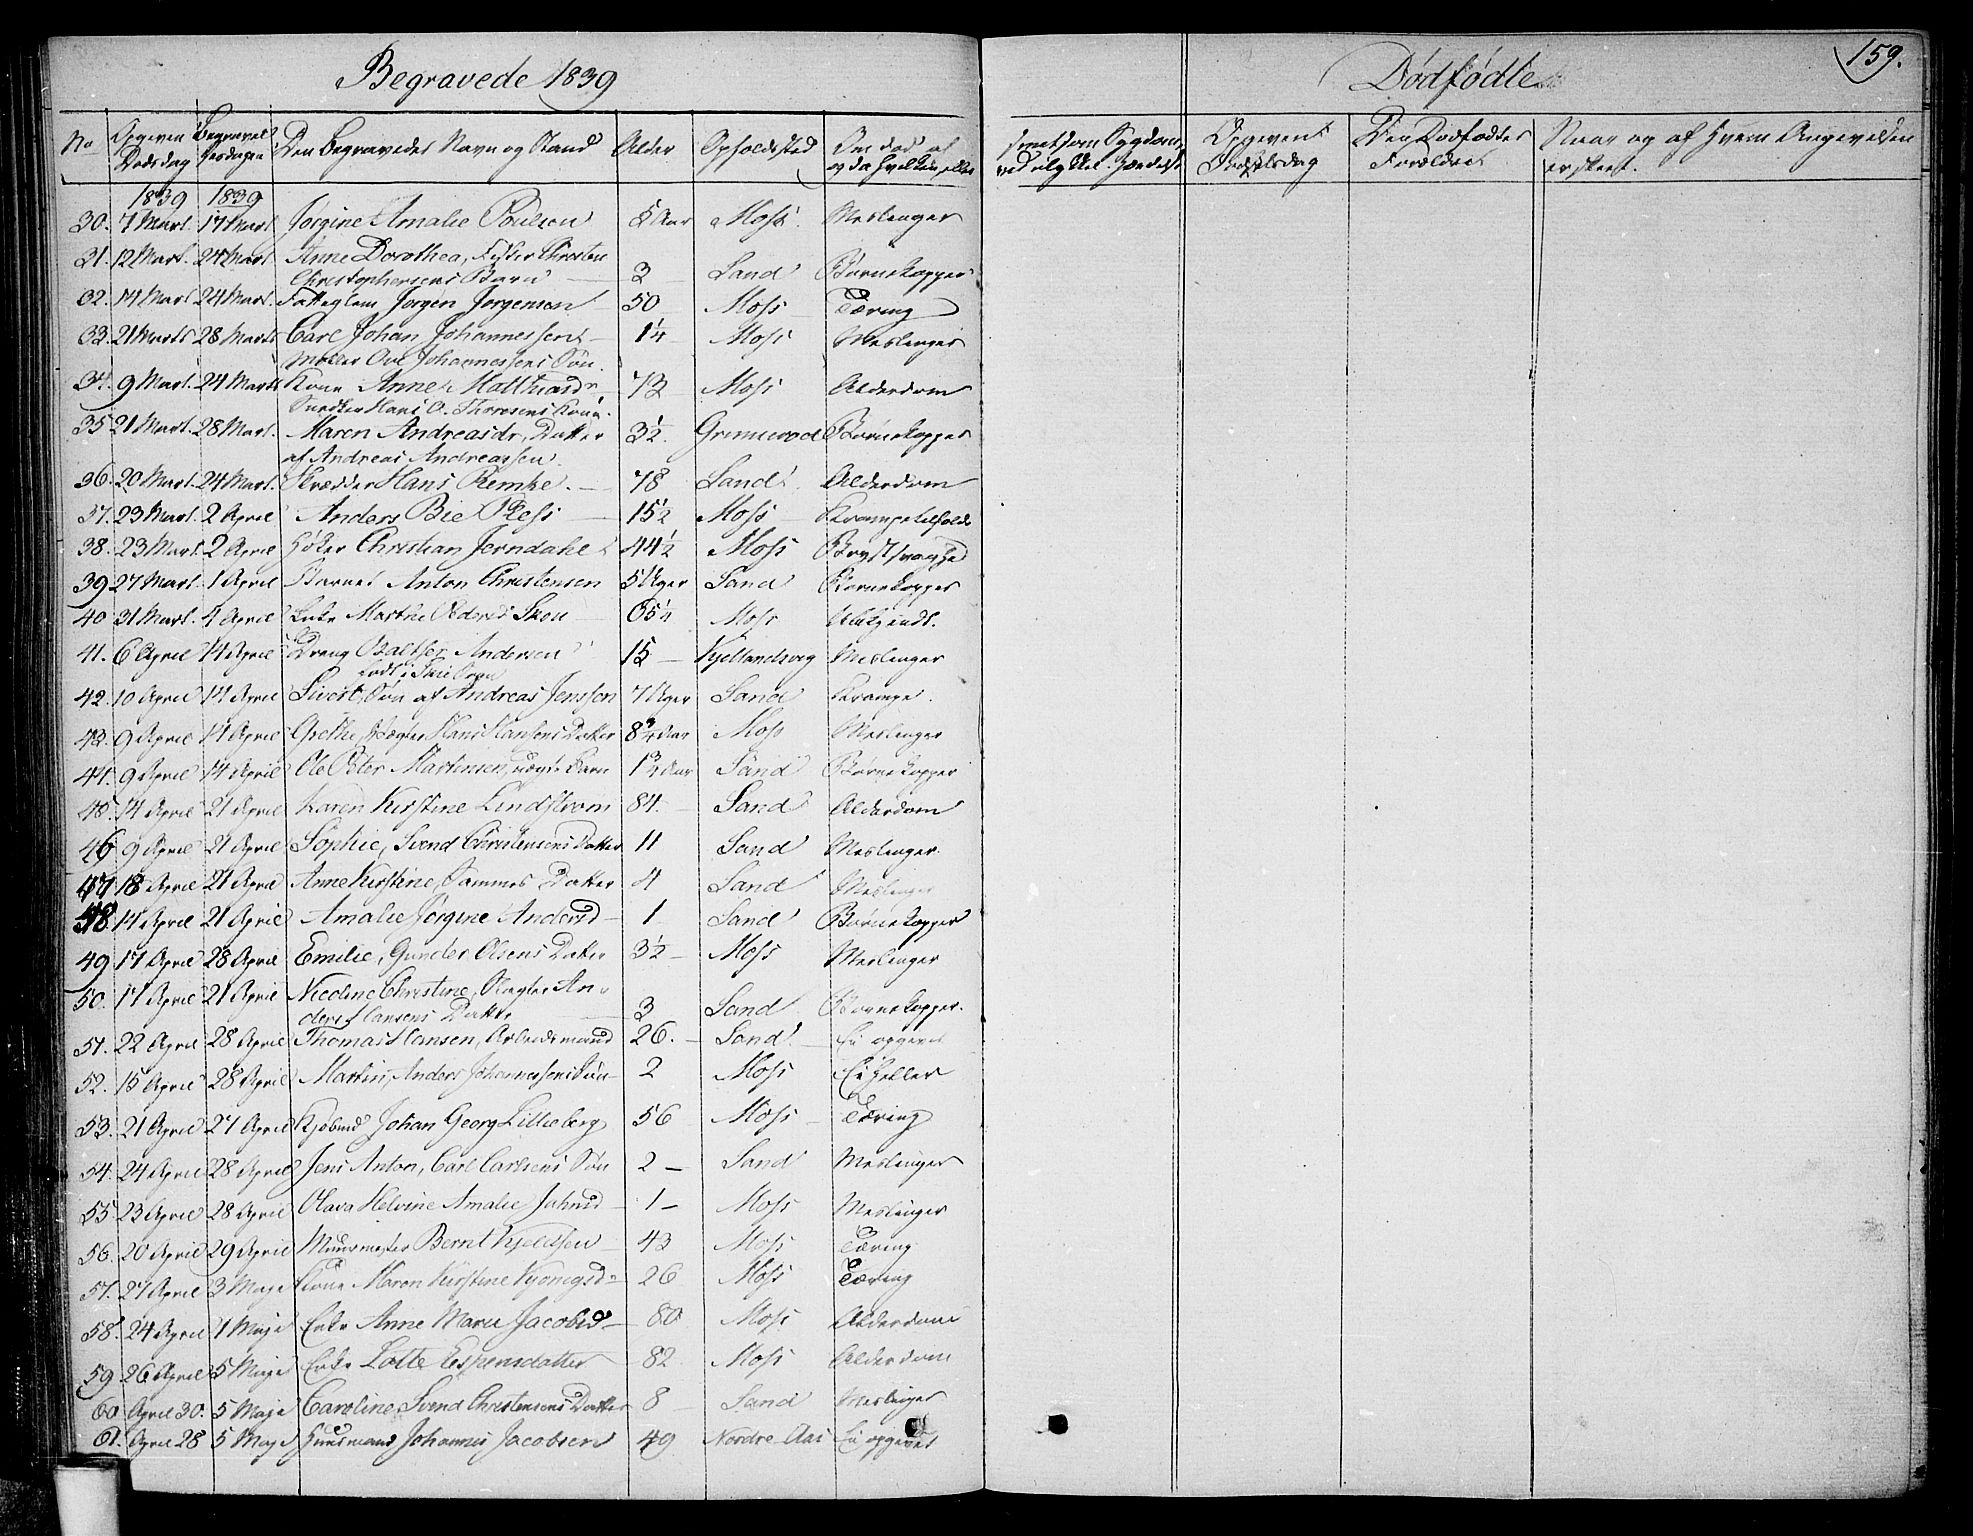 159.
Begravede 1839
Dødfødte
No Opgiven Dødsdag Begravelsesdagen Den Begravedes Navn og Stand Alder Opholdssted Om død af
og da hvilken, eller
Opgiven Fødselsdag Den Dødfødtes Forældre Naar og af Hvem Angivelsen er skeet.
1839 1839
30. 7 Mart. 17 Mart Jørgine Amalie Poulsen 5 Aar Moss Meslinger
31. 12 Mart. 24 Mart Anne Dorothea, Fisker Christen
Christophersens Barn 3 Sand Børnekopper
32. 14 Mart 24 Mart. Fattiglem Jørgen Jørgensen 50 Moss Tæring
33. 21 Marts 28 Marts Carl Johan Johannessen 1¼ Moss Meslinger
Møller Ole Johannessens Søn.
34. 9 Mart. 24 Marts Kone Anne Matthiasdr 73 Moss Alderdom
Snedker Hans O. Thoresens Kone.
35 21 Mart. 28 Mart. Maren Andreasdr, Datter 3½. Grimerød Børnekopper
af Andreas Andreassen.
36. 20 Mart. 24 Mart. Skrædder Hans Remke. 78 Sand Alderdom
37. 23 Mart. 2 April Anders Bie Pless 15½ Moss Krampetilfælde
38. 23 Mart. 2 April Høker Christian Jerndahl 44½ Moss Brystsvaghed
39 27 Mart. 1 April Barnet Anton Christensen 5 Uger Sand Børnekopper
40. 31 Mart. 4 April Enke Marthe Skou 65¼ Moss Ubekjendt.
41. 6 April 14 April Dreng Balthser Andersen 15 Kjellandsvig Meslinger
født i
42. 10 April 14 April Sivert, Søn af Andreas Jenssen 7 Uger Sand Krampe.
43. 9 April 14 April Grethe, Hans Hansens Datter 8¾ Aar Moss Meslinger
44. 9 April 14 April Ole Peter Martinsen, uægte Barn 1¾ Aar Sand Børnekopper
45. 14 April 21 April Karen Kirstine Lindstrøm 84. Sand Alderdom
46 9 April 21 April Sophie, Svend Christensens Datter 11 Sand Meslinger.
47 18 April 21 April Anne Kirstine, Sammes Datter 4 Sand Meslinger
48. 14 April 21 April Amalie Jørgine Andersd 1 Sand Børnekopper
49 17 April 28 April Emilie, Gunder Olsens Datter 3½ Moss Meslinger
50. 17 April 21 April Nicoline Christine, Slagter An-
ders Hansens Datter 3 Sand Børnekopper.
51. 22 April 28 April Thomas Hansen, Arbeidsmand 26. Sand Ei opgivet
52. 15 April 28 April Martin, Anders Johannessens Søn 2 Moss Ei heller
53. 21 April 27 April Kjøbmd Johan Georg Lillieberg 56 Moss Tæring
54. 24 April 28 April Jens Anton, Carl Carlsens Søn 2 Sand Meslinger
55. 23 April 28 April Olava Helvine Amalie Johnsd 1 Moss Meslinger
56. 20 April 29 April Muurmester Bernt Kjeldsen 43 Moss Tæring
57. 27 April 3 Maje Kone Maren Kirstine 26 Moss Tæring
58. 24 April 1 Maje Enke Anne Marie Jacobsd 80 Moss Alderdom
59 26 April 5 Maje Enke Lotte Espensdatter 82 Moss Alderdom
60 April 30. 5 Maje Caroline, Svend Christensens Datter 8 Sand Meslinger
61. April 28 5 Maje Huusmand Johannes Jacobsen 49 Nordre Aas Ei opgivet